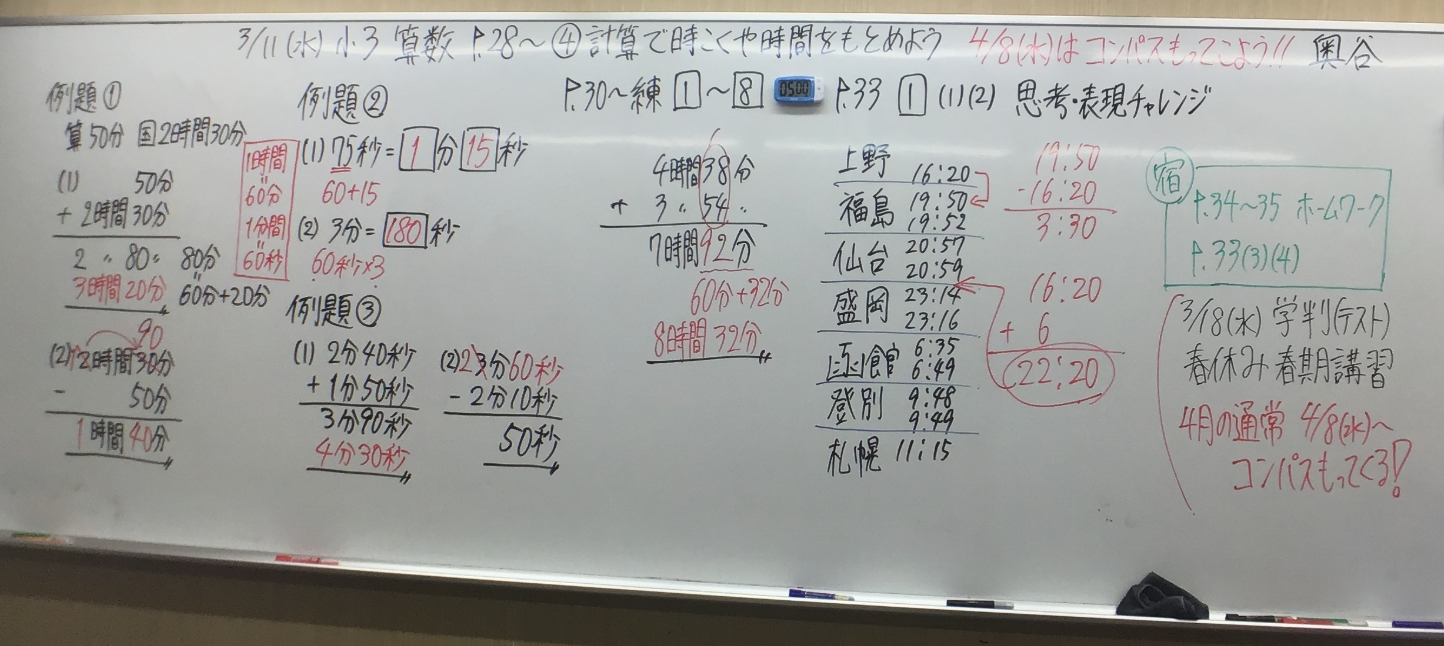 3/11(水) 小3 算数 P.28〜 ④計算で時こくや時間をもとめよう 4/8(水)はコンパスもってこよう!! 奥谷
P.30〜練 1〜8 05:00 P.33 1 (1)(2) 思考・表現チャレンジ
例題①
算50分 国2時間30分
(1) 50分
+ 2時間30分
2 〃 80〃 80分
〃
3時間20分 60分+20分
90
(2) 1 2時間30分
- 50分
1時間40分
1時間
〃
60分
1分間
〃
60秒
例題②
(1) 75秒=1分15秒
60+15
(2) 3分=180秒
60秒×3
例題③
(1) 2分40秒
+1分50秒
3分90秒
4分30秒
(2) 2 3分60秒
-2分10秒
50秒
4時間38分
+ 3 〃 54 〃
7時間92分
60分+32分
8時間32分
上野 16:20
福島 19:50
19:52
仙台 20:57
20:59
盛岡 23:14
23:16
函館 6:35
6:49
登別 9:48
9:49
札幌 11:15
19:50
-16:20
3:30
16:20
+ 6
22:20
宿
P.34〜35 ホームワーク
P.33(3)(4)
3/18(水) 学判(テスト)
春休み 春期講習
4月の通常 4/8(水)〜
コンパスもってくる!